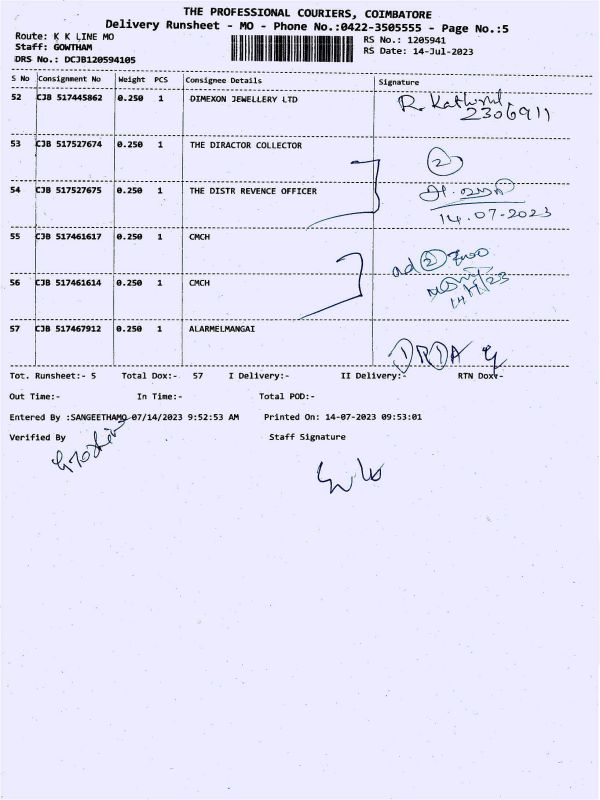 THE PROFESSIONAL COURIERS, COIMBATORE
Delivery Runsheet - MO - Phone No.:0422-3505555 - Page No.:5
Route: K K LINE MO
RS No.: 1205941
Staff: GOWTHAM
RS Date: 14-Jul-2023
DRS No.: DCJB120594105
S No Consignment No Weight PCS Consignee Details Signature
52 CJB 517445862 0.250 1 DIMEXON JEWELLERY LTD
2306911
53 CJB 517527674 0.250 1 THE DIRACTOR COLLECTOR
2
54 CJB 517527675 0.250 1 THE DISTR REVENCE OFFICER
14.07-2023
55 CJB 517461617 0.250 1 CMCH
2
56 CJB 517461614 0.250 1 CMCH
14/7/23
57 CJB 517467912 0.250 1 ALARMELMANGAI
Tot. Runsheet:- 5 Total Dox:- 57 I Delivery:- II Delivery:- RTN Dox:-
Out Time:- In Time:- Total POD:-
Entered By :SANGEETHAMO 07/14/2023 9:52:53 AM Printed On: 14-07-2023 09:53:01
Verified By Staff Signature